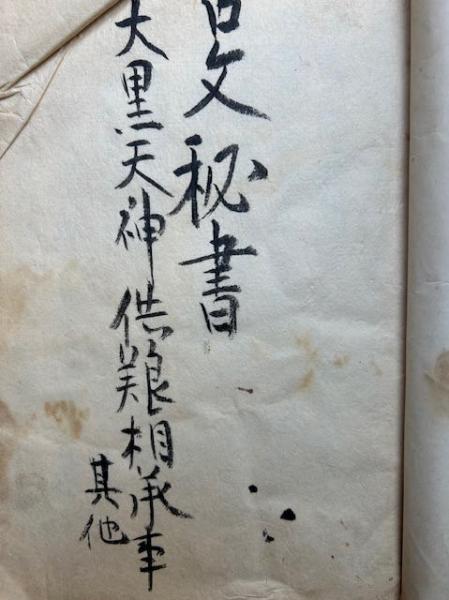 文秘書
大黒天神供養相承事
其他